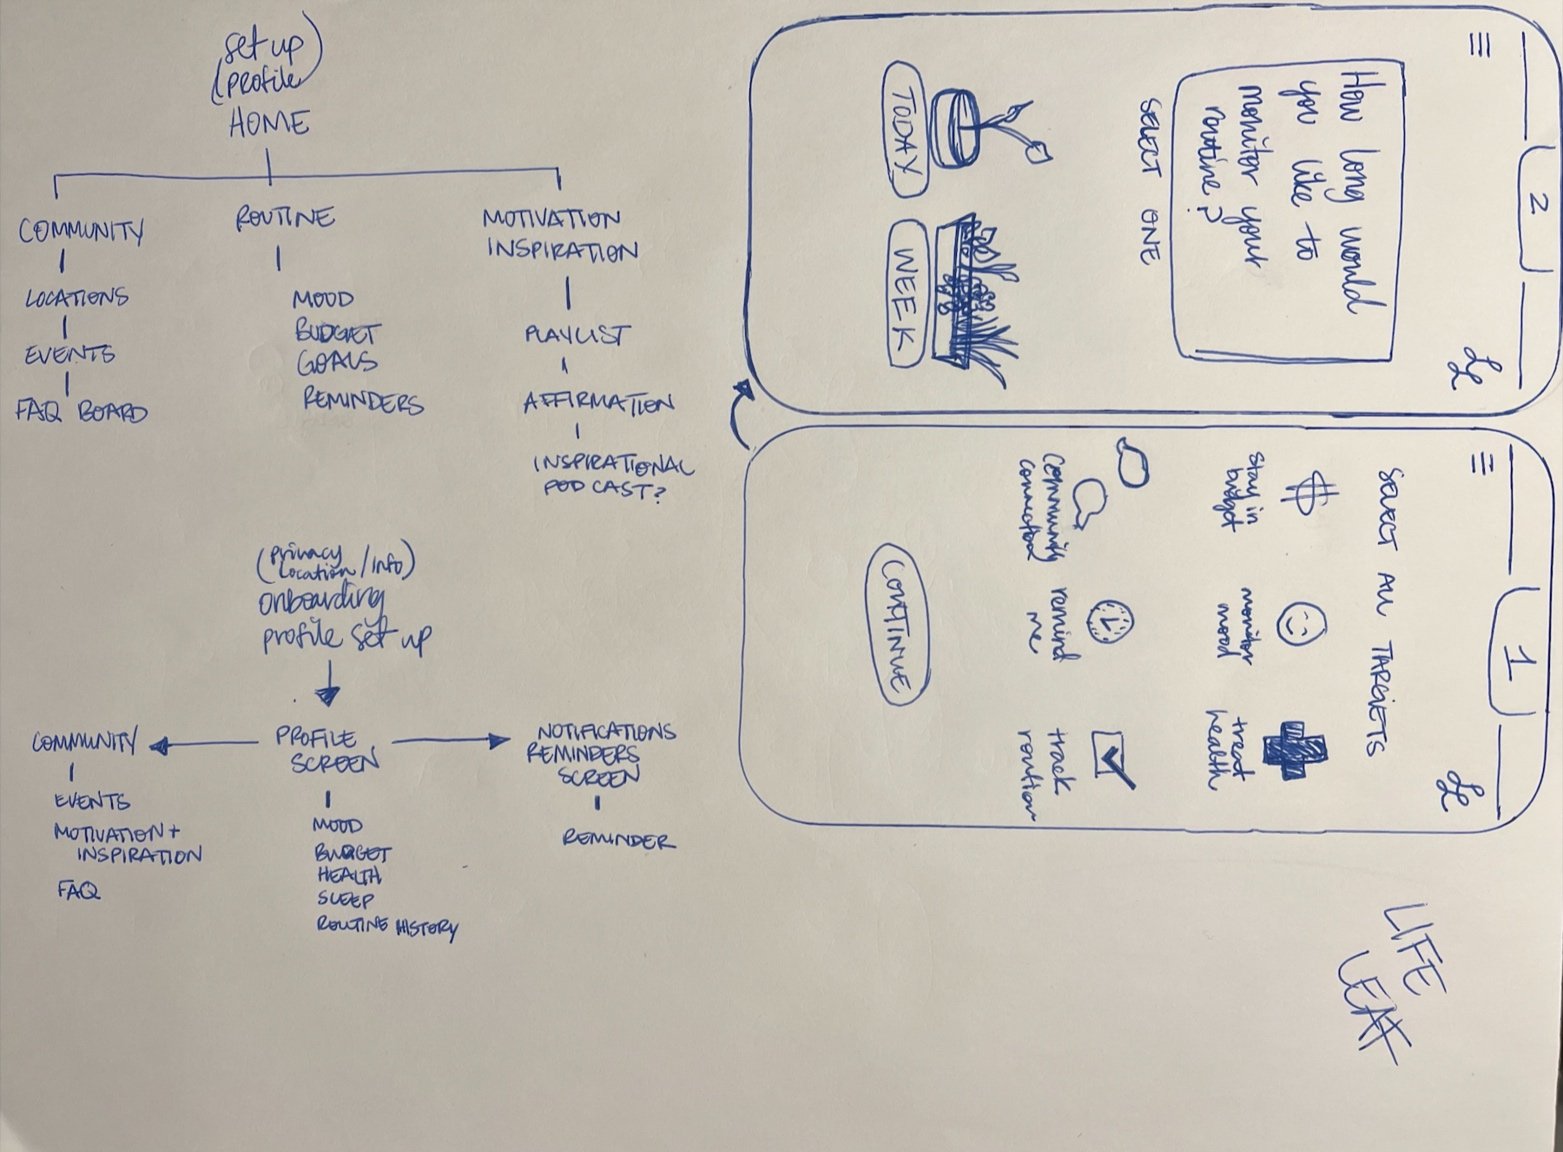 (set up)
(profile
HOME
COMMUNITY
LOCATIONS
EVENTS
FAQ BOARD
ROUTINE
MOOD
BUDGET
GOALS
REMINDERS
MOTIVATION
INSPIRATION
PLAYLIST
AFFIRMATION
INSPIRATIONAL
PODCAST?
(privacy
location/info)
onboarding
profile set up
PROFILE
SCREEN
MOOD
BUDGET
HEALTH
SLEEP
ROUTINE HISTORY
COMMUNITY
EVENTS
MOTIVATION +
INSPIRATION
FAQ
NOTIFICATIONS
REMINDERS
SCREEN
REMINDER
1
LL
SELECT ALL TARGETS
stay in
budget
monitor
mood
treat
health
community
connection
remind
me
track
routine
CONTINUE
2
LL
How long would
you like to
monitor your
routine?
SELECT ONE
TODAY
WEEK
LIFE
LEAF